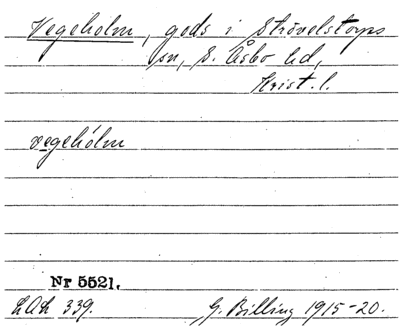 Vegeholm, gods i Strövelstorps
sn, S. Åsbo hd,
Krist. l.
vegehólm
Nr 5521.
LAL 339. G. Billing 1915-20.